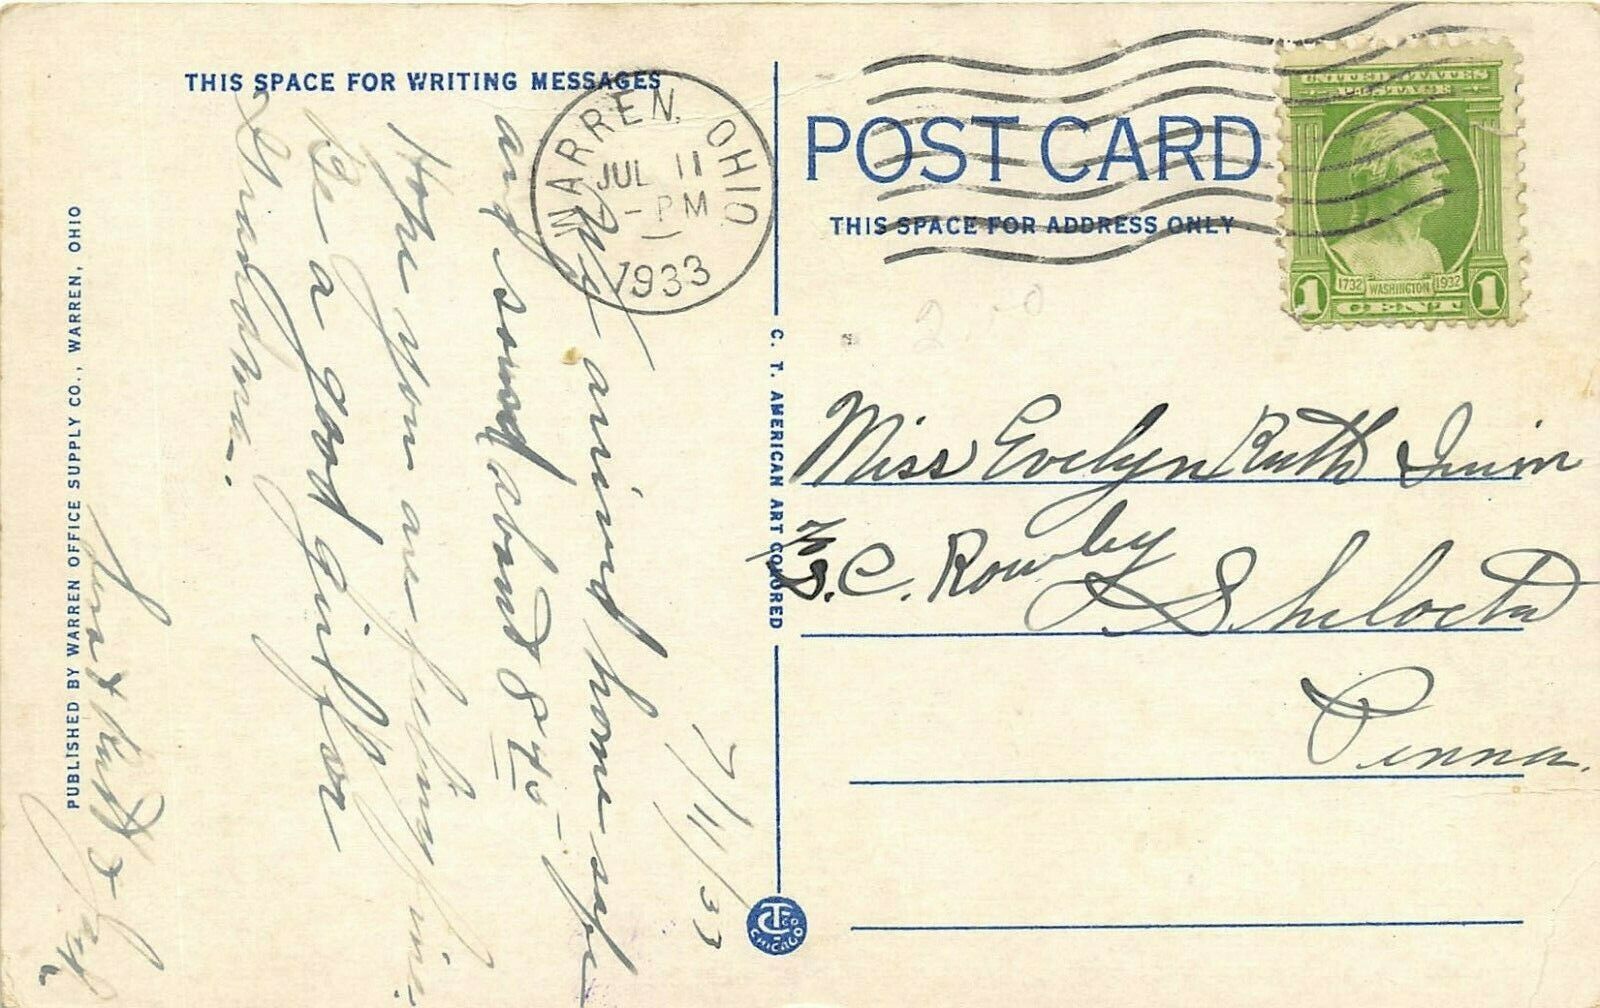 THIS SPACE FOR WRITING MESSAGES
7/11/33
arrived home safe
and sound about 8 45 -
Hope you are feeling fine.
Be a good girl for
Grandma.
WARREN, OHIO
JUL 11
-PM
1933
POST CARD
THIS SPACE FOR ADDRESS ONLY
UNITED STATES
POSTAGE
1732 WASHINGTON 1932
1 CENT 1
Miss Evelyn Ruth
S. C. Rowley
Shelocta
Penna.
C. T. AMERICAN ART COLORED
CT CO
CHICAGO
PUBLISHED BY WARREN OFFICE SUPPLY CO., WARREN, OHIO